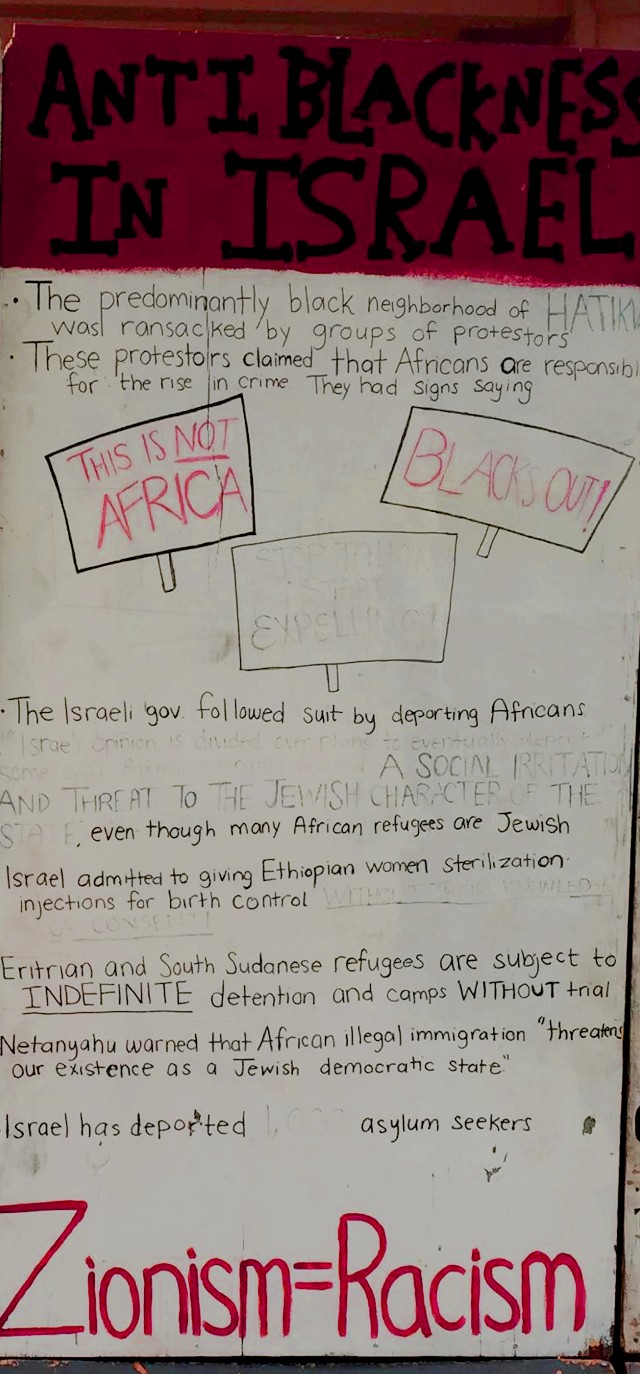 ANTI BLACKNESS
IN ISRAEL
• The predominantly black neighborhood of HATIKV
was ransacked by groups of protestors
• These protestors claimed that Africans are responsibl
for the rise in crime They had signs saying
THIS IS NOT
AFRICA
BLACKS OUT!
STOP TALKIN
START
EXPELLING!
• The Israeli gov. followed suit by deporting Africans
"Israeli opinion is divided over plans to eventually deport
some
A SOCIAL IRRITATION
AND THREAT TO THE JEWISH CHARACTER OF THE
STATE, even though many African refugees are Jewish
Israel admitted to giving Ethiopian women sterilization
injections for birth control WITHOUT THEIR KNOWLEDGE
OR CONSENT!!
Eritrian and South Sudanese refugees are subject to
INDEFINITE detention and camps WITHOUT trial
Netanyahu warned that African illegal immigration "threatens
our existence as a Jewish democratic state"
Israel has deported asylum seekers
Zionism=Racism